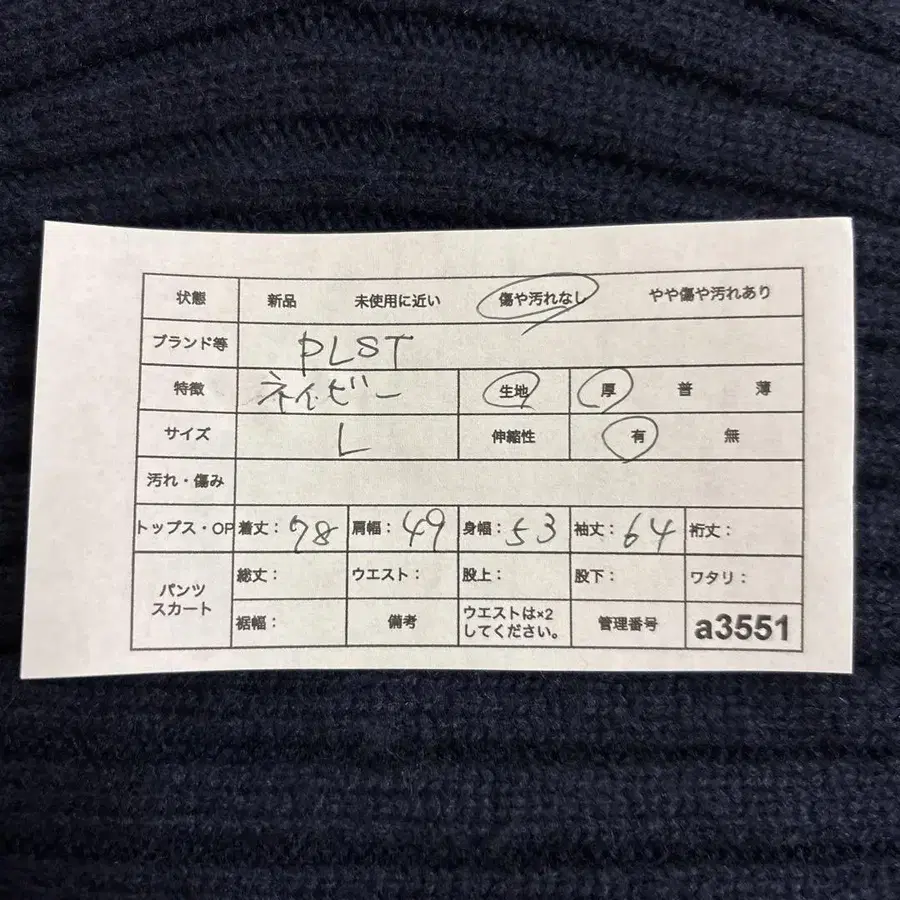 状態 新品 未使用に近い 傷や汚れなし やや傷や汚れあり
ブランド等 PLST
特徴 ネイビー 生地 厚 普 薄
サイズ L 伸縮性 有 無
汚れ・傷み
トップス・OP 着丈： 78 肩幅： 49 身幅： 53 袖丈： 64 裄丈：
パンツ スカート 総丈： ウエスト： 股上： 股下： ワタリ：
裾幅： 備考 ウエストは×2 してください。 管理番号 a3551